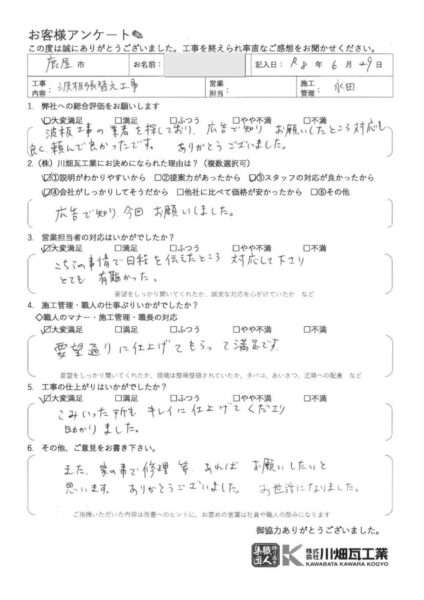 お客様アンケート✎
この度は誠にありがとうございました。工事を終えられ率直なご感想をお聞かせください。
鹿屋 市 お名前: 記入日: R8年6月29日
工事内容: 波板張替え工事 営業担当: 施工管理: 永田
1. 弊社への総合評価をお願いします
☑大変満足 □満足 □ふつう □やや不満 □不満
波板工事の業者を探しており、広告で知り お願いしたところ対応も
良く頼んで良かったです。 ありがとうございました。
2. (株)川畑瓦工業にお決めになられた理由は?(複数選択可)
☑①説明がわかりやすいから □②提案力があったから ☑③スタッフの対応が良かったから
☑④会社がしっかりしてそうだから □他社に比べて価格が安かったから □⑥その他
広告で知り今回お願いしました。
3. 営業担当者の対応はいかがでしたか?
☑大変満足 □満足 □ふつう □やや不満 □不満
こちらの事情で日程を伝えたところ 対応して下さり
とても 有難かった。
要望をしっかり聞いてくれたか、誠実な対応を心がけていたか など
4. 施工管理・職人の仕事ぶりいかがでしたか?
◇職人のマナー・施工管理・職長の対応
☑大変満足 □満足 □ふつう □やや不満 □不満
要望通りに仕上げてもらって満足です。
要望をしっかり聞いてくれたか、現場は整理整頓されていたか、タバコ、あいさつ、近隣への配慮 など
5. 工事の仕上がりはいかがでしたか?
☑大変満足 □満足 □ふつう □やや不満 □不満
こみいった所も キレイに仕上げてくださり
助かりました。
6. その他、ご意見をお書き下さい。
また、家の事で修理等、あれば お願いしたいと
思います。 ありがとうございました。 お世話になりました。
ご指摘いただいた内容は改善へのヒントに、お褒めの言葉は社員や職人の励みになります
御協力ありがとうございました。
職人集団 株式会社川畑瓦工業
KAWABATA KAWARA KOGYO